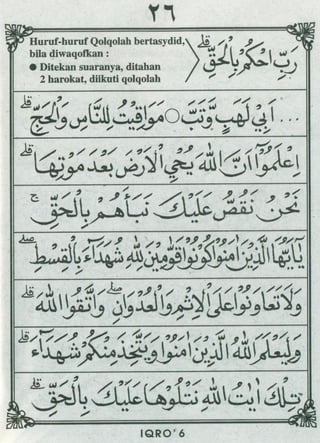 ٢٦
Huruf-huruf Qolqolah bertasydid,
bila diwaqofkan :
● Ditekan suaranya, ditahan
2 harokat, diikuti qolqolah
رَبِّ احْكُمْ بِالْحَقِّ ۗ
... اَبِيْ لَهَبٍ وَّتَبَّ ○ مَوَاقِيْتُ لِلنَّاسِ وَالْحَجِّ ۗ
اِعْلَمُوْٓا اَنَّ اللّٰهَ يُحْيِ الْاَرْضَ بَعْدَ مَوْتِهَا ۗ
نَحْنُ نَقُصُّ عَلَيْكَ نَبَأَهُمْ بِالْحَقِّ ۚ
يٰٓاَيُّهَا الَّذِيْنَ اٰمَنُوْا كُوْنُوْا قَوَّامِيْنَ لِلّٰهِ شُهَدَآءَ بِالْقِسْطِ ۖ
وَلَا تَعَاوَنُوْا عَلَى الْاِثْمِ وَالْعُدْوَانِ ۖ وَاتَّقُوا اللّٰهَ ۗ
وَلِيَعْلَمَ اللّٰهُ الَّذِيْنَ اٰمَنُوْا وَيَتَّخِذَ مِنْكُمْ شُهَدَآءَ ۗ
تِلْكَ اٰيٰتُ اللّٰهِ نَتْلُوْهَا عَلَيْكَ بِالْحَقِّ ۗ
IQRO' 6